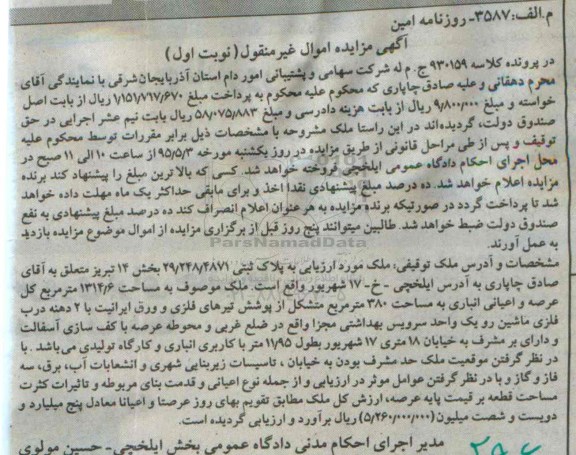 م.الف:۳۵۸۷- روزنامه امین
آگهی مزایده اموال غیرمنقول( نوبت اول )
در پرونده کلاسه ۹۳۰۱۵۹ ج. م له شرکت سهامی و پشتیبانی امور دام استان آذربایجان‌شرقی با نمایندگی آقای
محرم دهقانی و علیه صادق چاپاری که محکوم علیه محکوم به پرداخت مبلغ ۱/۱۵۱/۸۱۷/۶۷۰ ریال از بابت اصل
خواسته و مبلغ ۹/۸۰۰/۰۰۰ ریال از بابت هزینه دادرسی و مبلغ ۵۸/۰۷۵/۸۸۳ ریال بابت نیم عشر اجرایی در حق
صندوق دولت، گردیده‌اند در این راستا ملک مشروحه با مشخصات ذیل برابر مقررات توسط محکوم علیه
توقیف و پس از طی مراحل قانونی از طریق مزایده در روز یکشنبه مورخه ۹۵/۵/۳ از ساعت ۱۰ الی ۱۱ صبح در
محل اجرای احکام دادگاه عمومی ایلخچی فروخته خواهد شد. کسی که بالاترین مبلغ را پیشنهاد کند برنده
مزایده اعلام خواهد شد. ده درصد مبلغ پیشنهادی نقدا اخذ و برای مابقی حداکثر یک ماه مهلت داده خواهد
شد تا پرداخت گردد در صورتیکه برنده مزایده به هر عنوان اعلام انصراف کند ده درصد مبلغ پیشنهادی به نفع
صندوق دولت ضبط خواهد شد. طالبین میتوانند پنج روز قبل از برگزاری مزایده از اموال موضوع مزایده بازدید
به عمل آورند.
ParsNamadData
مشخصات و آدرس ملک توقیفی، ملک مورد ارزیابی به پلاک ثبتی ۲۹/۲۴۸/۴۸۷۱ بخش ۱۴ تبریز متعلق به آقای
صادق چاپاری به آدرس ایلخچی - خ- ۱۷ شهریور واقع است. ملک موصوف به مساحت ۱۳۱۴/۶ مترمربع کل
عرصه و اعیانی انباری به مساحت ۳۸۰ مترمربع متشکل از پوشش تیرهای فلزی و ورق ایرانیت با ۲ دهنه درب
فلزی ماشین رو یک واحد سرویس بهداشتی مجزا واقع در ضلع غربی و محوطه عرصه با کف سازی آسفالت
و دارای بر مشرف به خیابان ۱۸ متری ۱۷ شهریور بطول ۱۱/۹۵ متر با کاربری انباری و کارگاه تولیدی می‌باشد. با
در نظر گرفتن موقعیت ملک حد مشرف بودن به خیابان ، تاسیسات زیربنایی شهری و انشعابات آب، برق، سه
فاز و گاز و با در نظر گرفتن عوامل موثر در ارزیابی و از جمله نوع اعیانی و قدمت بنای مربوطه و تاثیرات کثرت
مساحت قطعه بر قیمت پایه عرصه، ارزش کل ملک مطابق تقویم بهای روز عرصتا و اعیانا معادل پنج میلیارد و
دویست و شصت میلیون (۵/۲۶۰/۰۰۰/۰۰۰) ریال برآورد و ارزیابی گردیده است.
مدیر اجرای احکام مدنی دادگاه عمومی بخش ایلخچی- حسین مولوی